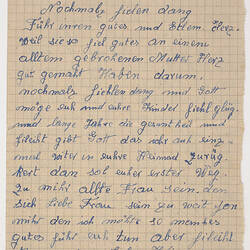 Nochmals fielen dang
Führ inren gutes und Edlem Herz.
Weil sie so fiel gutes an einem
alltem gebrohenen Mutter Herz
gut gemaht Habin darum,
nochmals fiehlen dang und Gott
möge euh und euhre Kinder fiehl glüg
und lange Jahre die gesuntheid und
fileiht gibt Gott das ihr auh einz=
mal witer in euhre Heimad Zurüg
kert dan sol euher erster Weg
zu mihr allte Frau sein, den
sich liebe Frau sein zu weit fon
mihr den ich möhte so menhes
gutes führ euh tun aber fileiht